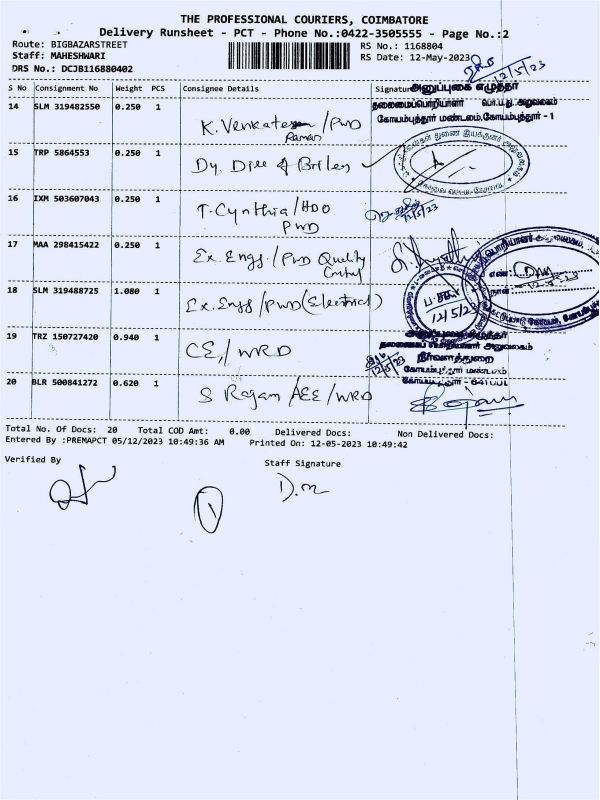 THE PROFESSIONAL COURIERS, COIMBATORE
Delivery Runsheet - PCT - Phone No.:0422-3505555 - Page No.:2
Route: BIGBAZARSTREET
RS No.: 1168804
Staff: MAHESHWARI
RS Date: 12-May-2023
DRS No.: DCJB116880402
12/5/23
S No Consignment No Weight PCS Consignee Details Signature
அனுப்புகை எழுத்தர்
தலைமைப்பொறியாளர் பொ.ப.து. அலுவலகம்
கோயம்புத்தூர் மண்டலம்.கோயம்புத்தூர் - 1
14 SLM 319482550 0.250 1 K. Venkatesan/PWD
Raman
15 TRP 5864553 0.250 1 Dy. Dire of
16 IXM 503607043 0.250 1 T. Cynthia/HDO
PWD
12/5/23
17 MAA 298415422 0.250 1 Ex. Engg./PWD Quality
Control
18 SLM 319488725 1.080 1 Ex. Engg/PWD(Electrical)
12/5/23
19 TRZ 150727420 0.940 1 CE,/WRD
அனுப்புகை எழுத்தர்
தலைமைப் பொறியாளர் அலுவலகம்
நீர்வளத்துறை
கோயம்புத்தூர் மண்டலம்
கோயம்புத்தூர் - 641001.
12/5/23
20 BLR 500841272 0.620 1 S Rajam/AEE/WRD
Total No. Of Docs: 20 Total COD Amt: 0.00 Delivered Docs: Non Delivered Docs:
Entered By :PREMAPCT 05/12/2023 10:49:36 AM Printed On: 12-05-2023 10:49:42
Verified By
Staff Signature
D.m
1